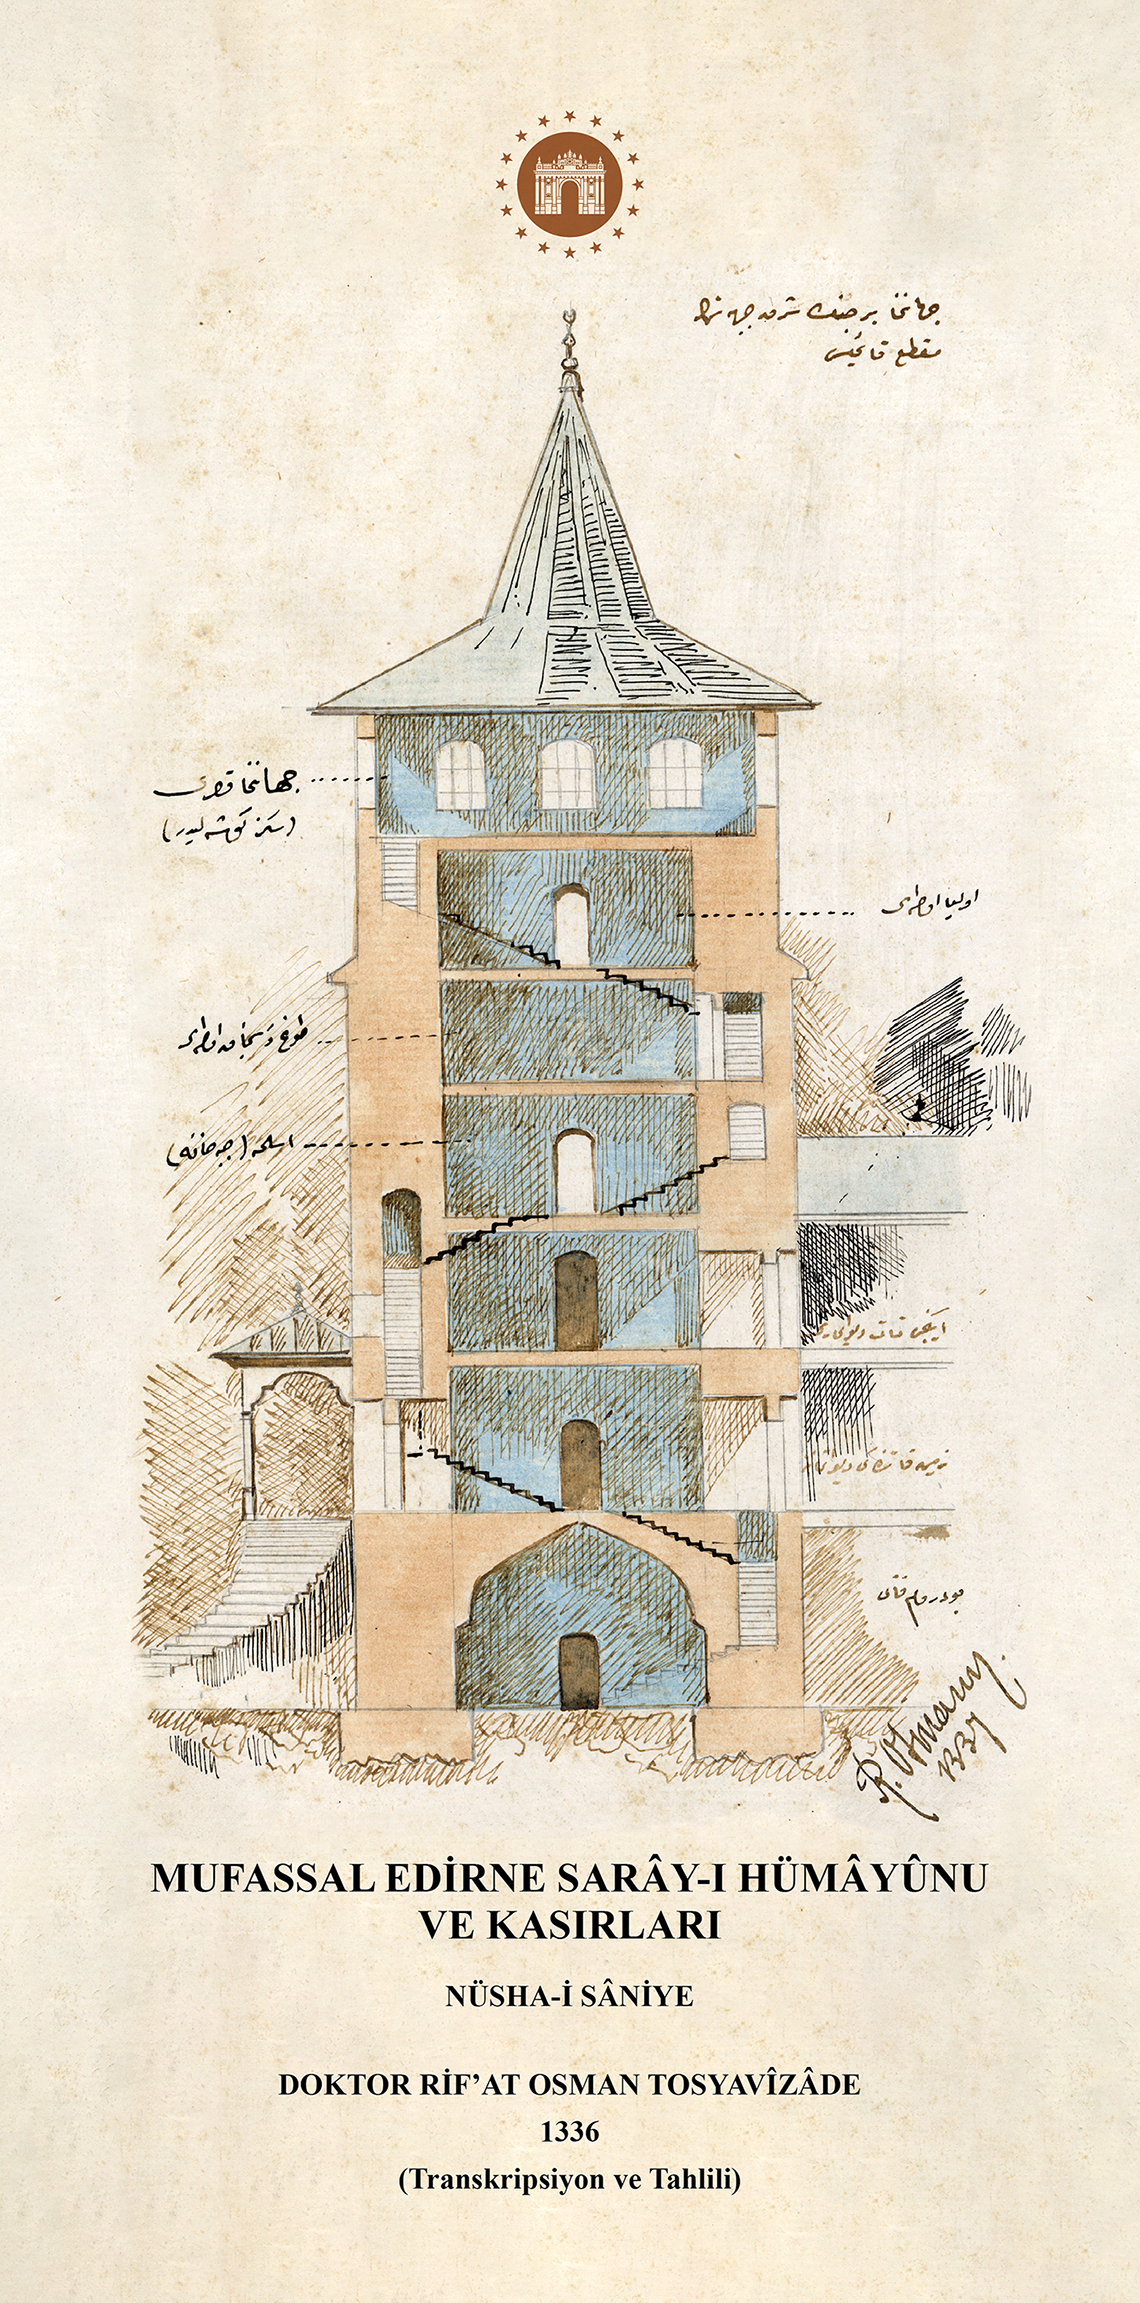 جهاننما برجنك شرقدن جهتله
مقطع قائمیسی
جهاننما قصری
(سكز كوشه ليدر)
اوليا اوطه‌سی
طوغ و سنجاق اوطه‌سی
اسلحه (جبه خانه)
ايكنجی قات ديوانی
زمين قاتنده كی
بودروم قاتی
R. Osman
١٣٣٧
MUFASSAL EDİRNE SARÂY-I HÜMÂYÛNU
VE KASIRLARI
NÜSHA-İ SÂNİYE
DOKTOR RİF’AT OSMAN TOSYAVÎZÂDE
1336
(Transkripsiyon ve Tahlili)